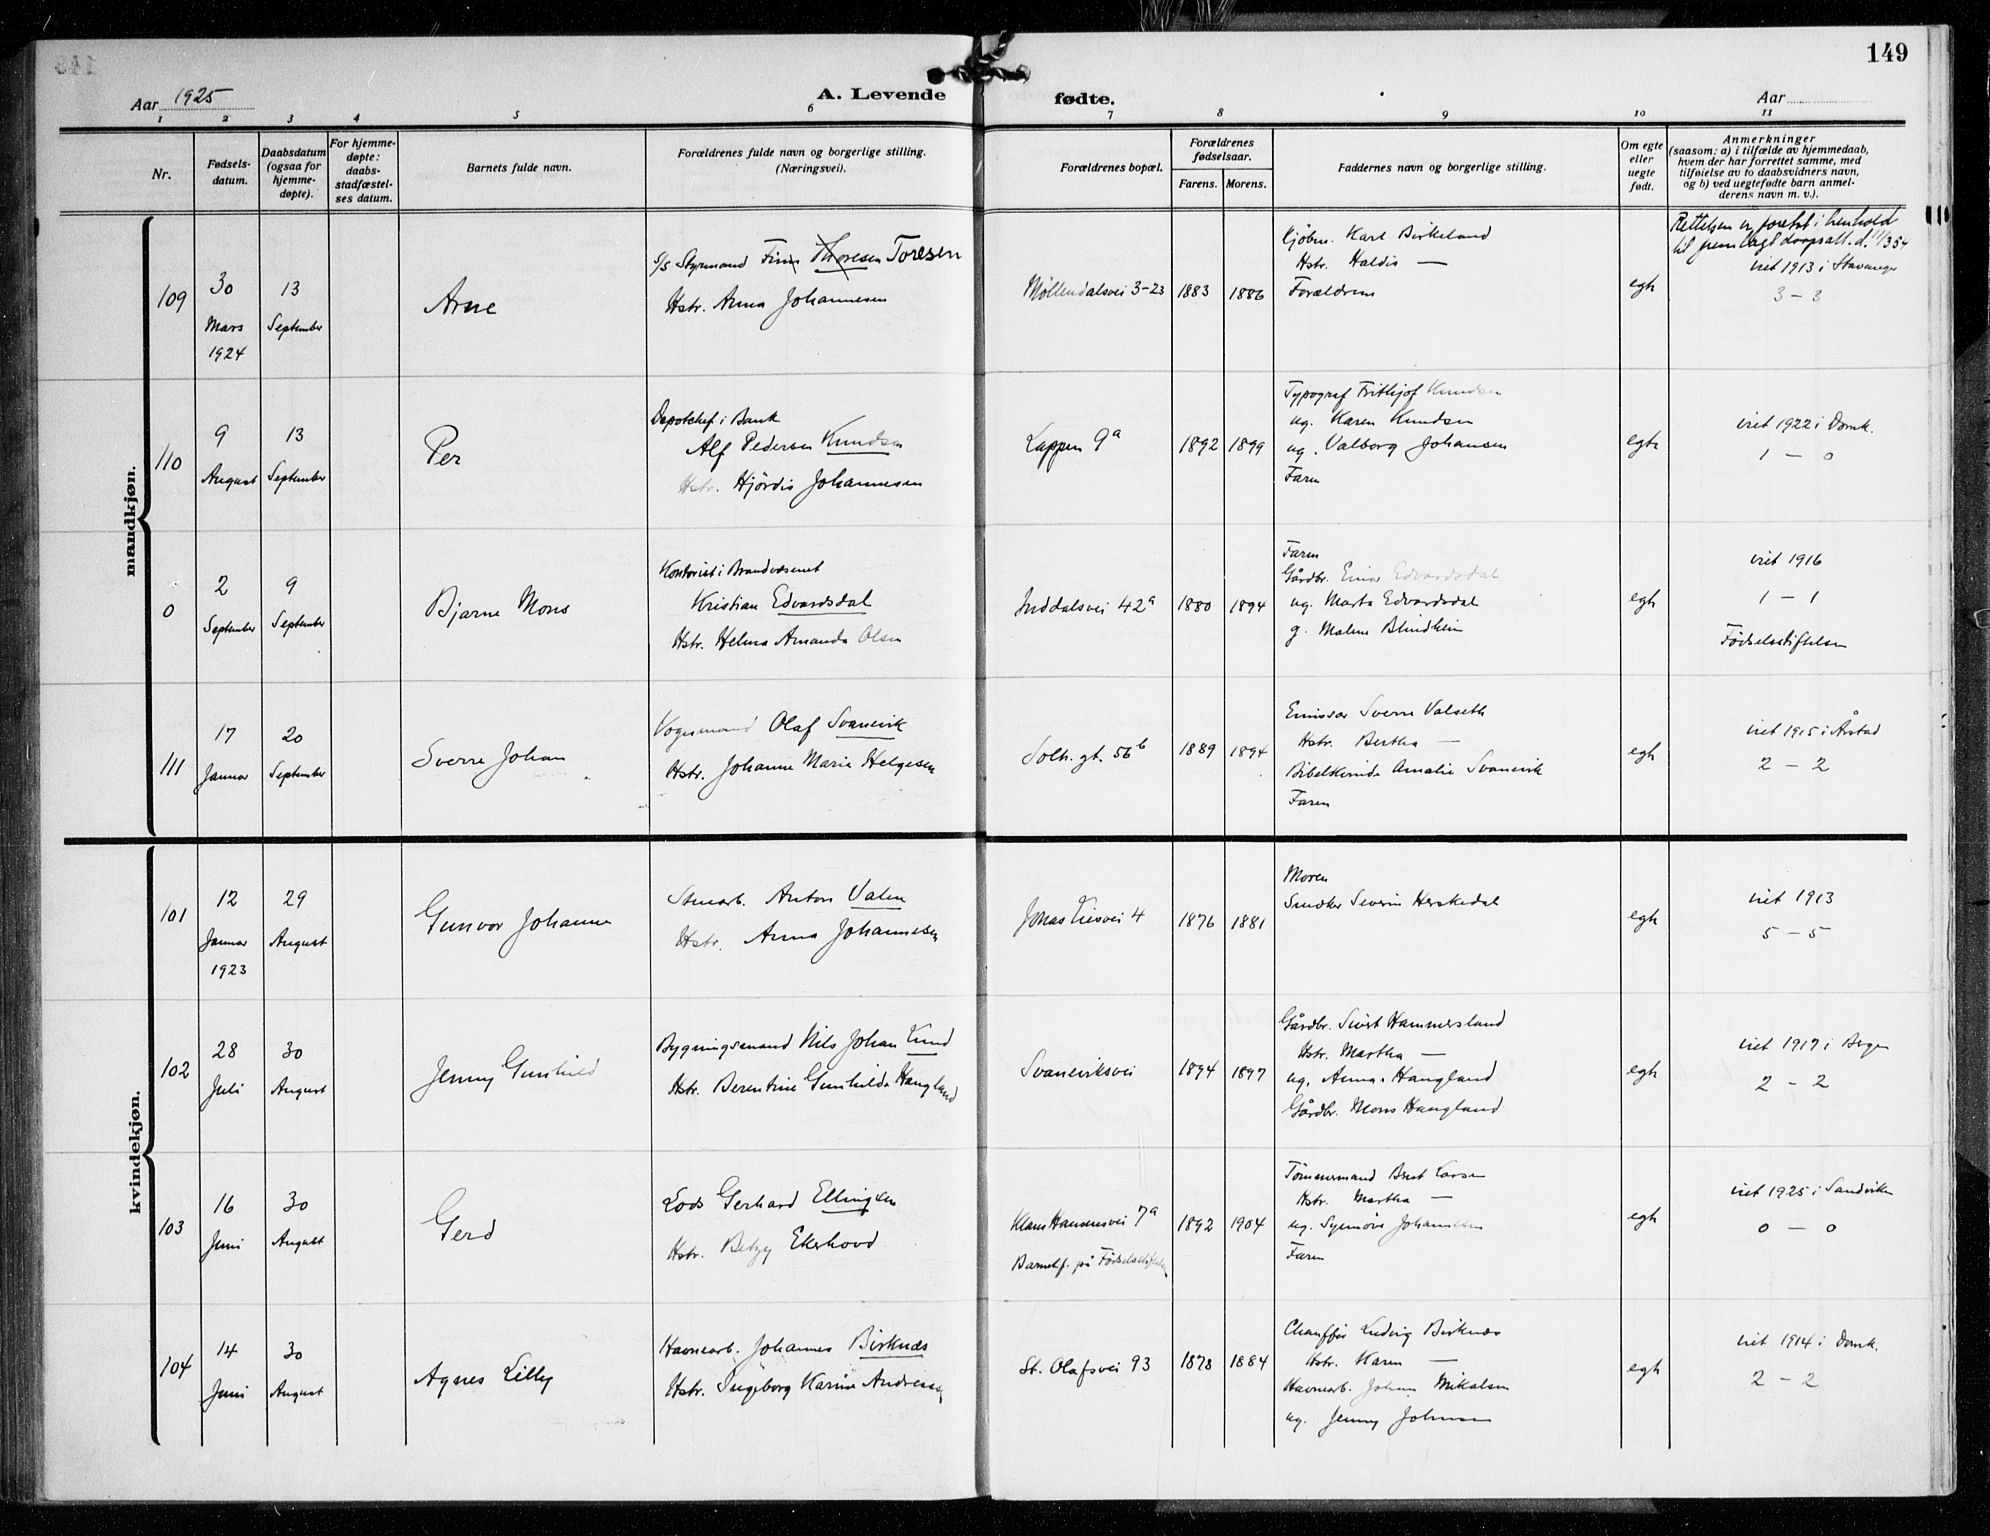 149
Aar 1925
A. Levende fødte.
Aar
1 2 3 4 5 6 7 8 9 10 11
Nr.
Fødsels-
datum.
Daabsdatum
(ogsaa for
hjemme-
døpte).
For hjemme-
døpte:
daabs-
stadfæstel-
ses datum.
Barnets fulde navn.
Forældrenes fulde navn og borgerlige stilling.
(Næringsvei).
Forældrenes bopæl.
Forældrenes
fødselsaar.
Farens. Morens.
Faddernes navn og borgerlige stilling.
Om egte
eller
uegte
født.
Anmerkninger
(saasom: a) i tilfælde av hjemmedaab,
hvem der har forrettet samme, med
tilføielse av to daabsvidners navn,
og b) ved uegtefødte barn anmel-
derens navn m. v.).
mandkjøn.
109
30
Mars
1924
13
September
Arne
S/S Styrmand Finn Thoresen Toresen
Hstr. Anna Johannesen
Møllendalsvei 3-23
1883
1886
Kjøbm. Karl Birkeland
Hstr. Haldis —
Forældrene
egte
Rettelsen er foretat i henhold
til fremlagt daapsatt. d. 1/3 54
viet 1913 i Stavanger
3 – 3
110
9
August
13
September
Per
Depotchef i Bank
Alf Pedersen Knudsen
Hstr. Hjørdis Johannesen
Lappen 9a
1892
1899
Typograf Frithjof Knudsen
ug. Karen Knudsen
ug. Valborg Johansen
Faren
egte
viet 1922 i Domk.
1 – 0
0
2
September
9
September
Bjarne Mons
Kontorist i Brandvæsenet
Kristian Edvardsdal
Hstr. Helma Amanda Olsen
Inddalsvei 42a
1880
1894
Faren
Gårdbr. Einar Edvardsdal
ug. Marta Edvardsdal
g. Malene Blindheim
egte
viet 1916
1 – 1
Fødselsstiftelsen
111
17
Januar
20
September
Sverre Johan
Vognmand Olaf Svanevik
Hstr. Johanne Marie Helgesen
Solh. gt. 56b
1889
1894
Emissær Sverre Valseth
Hstr. Bertha —
Bibelkvinde Amalie Svanevik
Faren
egte
viet 1915 i Årstad
2 – 2
kvindekjøn.
101
12
Januar
1923
29
August
Gunvor Johanne
Stuearb. Anton Valen
Hstr. Anna Johannesen
Jonas Liesvei 4
1876
1881
Moren
Snedker Severin Herskedal
egte
viet 1913
5 – 5
102
28
Juli
30
August
Jenny Gunhild
Bygningsmand Nils Johan Lund
Hstr. Berentine Gunhilda Haugland
Svaneviksvei
1894
1897
Gårdbr. Sivert Hammersland
Hstr. Martha —
ug. Anna Haugland
Gårdbr. Mons Haugland
egte
viet 1917 i Bergen
2 – 2
103
16
Juni
30
August
Gerd
Lods Gerhard Ellingsen
Hstr. Betzy Ekerhovd
Klaus Hansensvei 7a
Barnet f. på Fødselsstiftelsen
1892
1904
Tømmermand Bernt Larsen
Hstr. Martha —
ug. Synnøve Johannesen
Faren
egte
viet 1925 i Sandviken
0 – 0
104
14
Juni
30
August
Agnes Lilly
Havnearb. Johannes Birknæs
Hstr. Ingeborg Karine Andreassen
St. Olafsvei 93
1878
1884
Chauffør Ludvig Birknæs
Hstr. Karen —
Havnearb. Johan Mikalsen
ug. Jenny Johnsen
egte
viet 1914 i Domk.
2 – 2